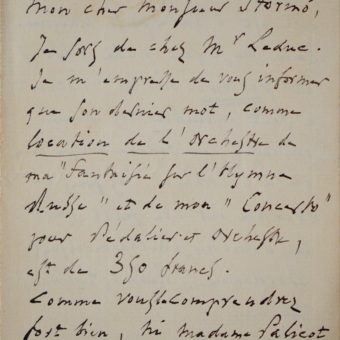 Mon cher Monsieur Stormo,
Je sors de chez Mr Leduc.
Je m'empresse de vous informer
que son dernier mot, comme
location de l'orchestre de
ma "Fantaisie sur l'Hymne
Russe" et de mon "Concerto"
pour Pédalier et Orchestre,
est de 350 francs.
Comme vous le comprendrez
fort bien, ni madame Palicot